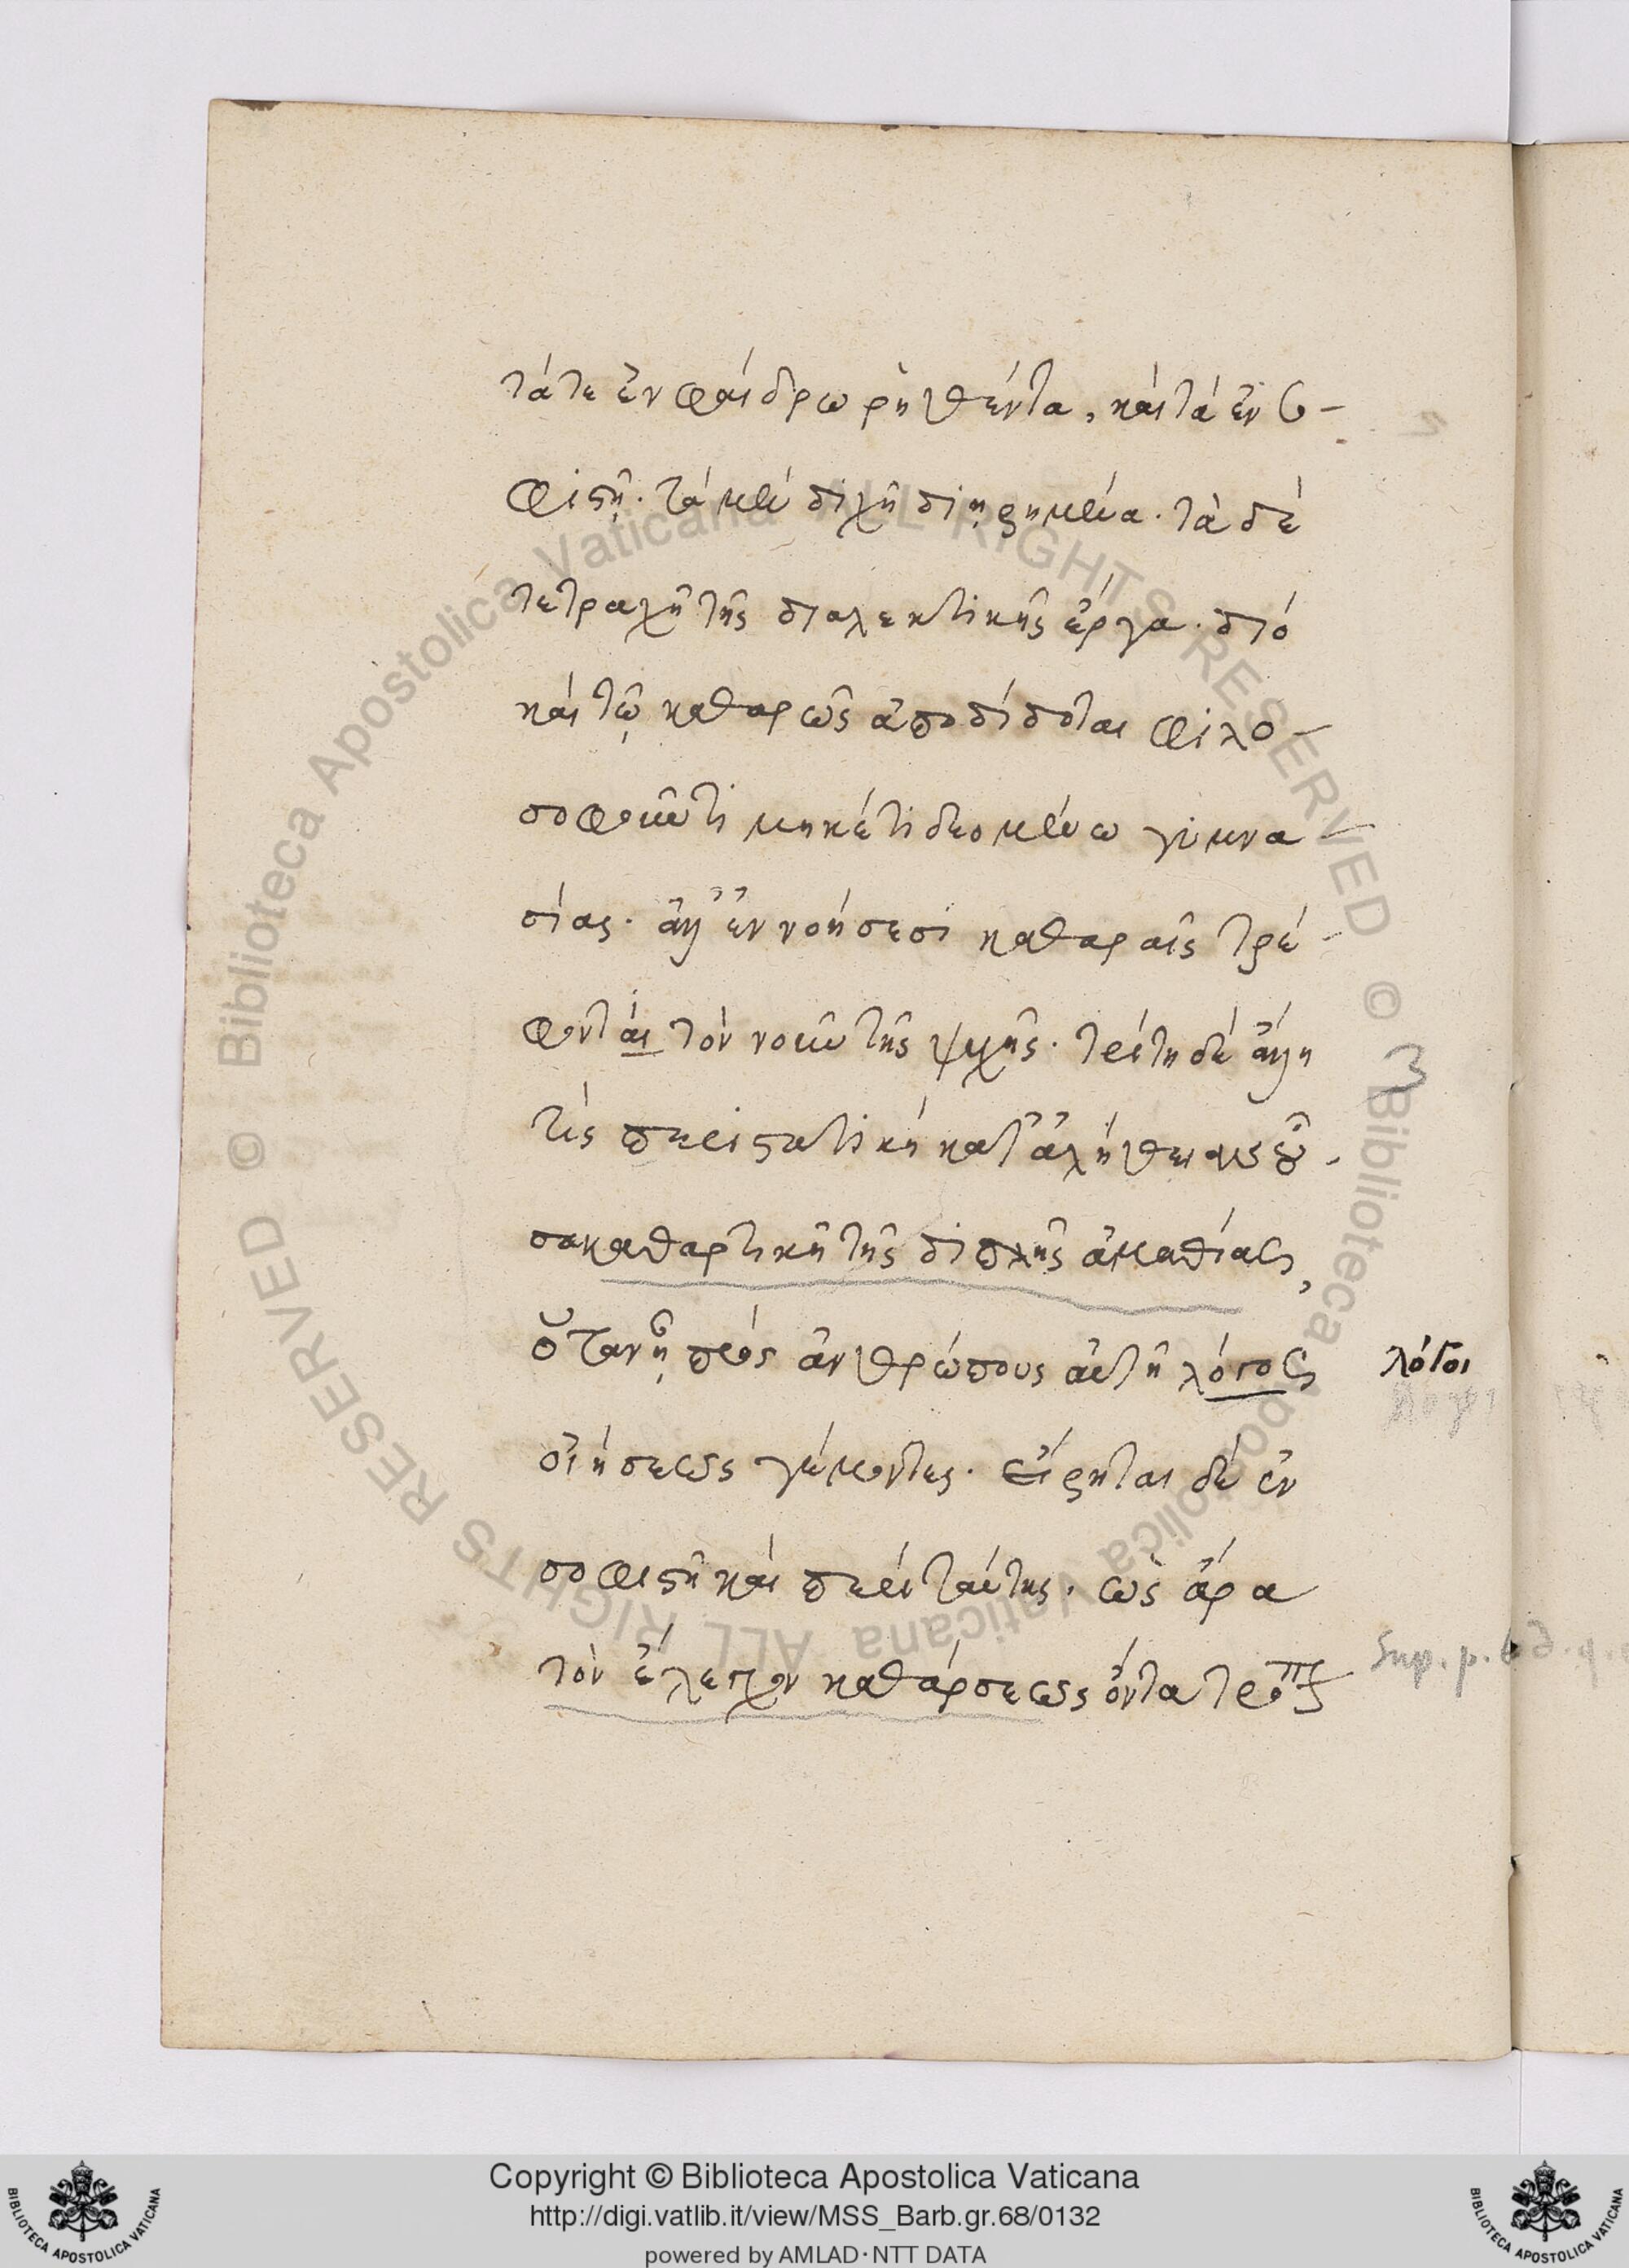 τά τε ἐν φαίδρω ῥηθέντα, καὶ τὰ ἐν σο-
φιστῆ. τὰ μὲν διχῆ διηρημένα. τὰ δὲ
τετραχῆ τῆς διαλεκτικῆς ἔργα. διό
καὶ τῷ καθαρῶς ἀποδίδοται φιλο-
σοφοῦντι μηκέτι δεομένω γυμνα-
σίας. ἀλλ' ἐν νοήσεσι καθαραῖς τρέ-
φονται τὸν νοῦν τῆς ψυχῆς. τρίτη δὲ ἄλλη
τίς πειραστικὴ κατ' ἀλήθειαν οὖ-
σα καθαρτικὴ τῆς διπλῆς ἀμαθίας,
ὅταν ᾖ πρὸς ἀνθρώπους αὐτῆ λόγος λόγοι
οἰήσεως γέμοντες. εἴρηται δὲ ἐν
σοφιστῆ καὶ περὶ ταύτης. ὡς ἄρα
τὸν ἔλεγχον καθάρσεως ὄντα τρόπον
Sup. p.
Copyright © Biblioteca Apostolica Vaticana
http://digi.vatlib.it/view/MSS_Barb.gr.68/0132
powered by AMLAD·NTT DATA
BIBLIOTECA APOSTOLICA VATICANA
BIBLIOTECA APOSTOLICA VATICANA
© Biblioteca Apostolica Vaticana ALL RIGHTS RESERVED © Biblioteca Apostolica Vaticana ALL RIGHTS RESERVED